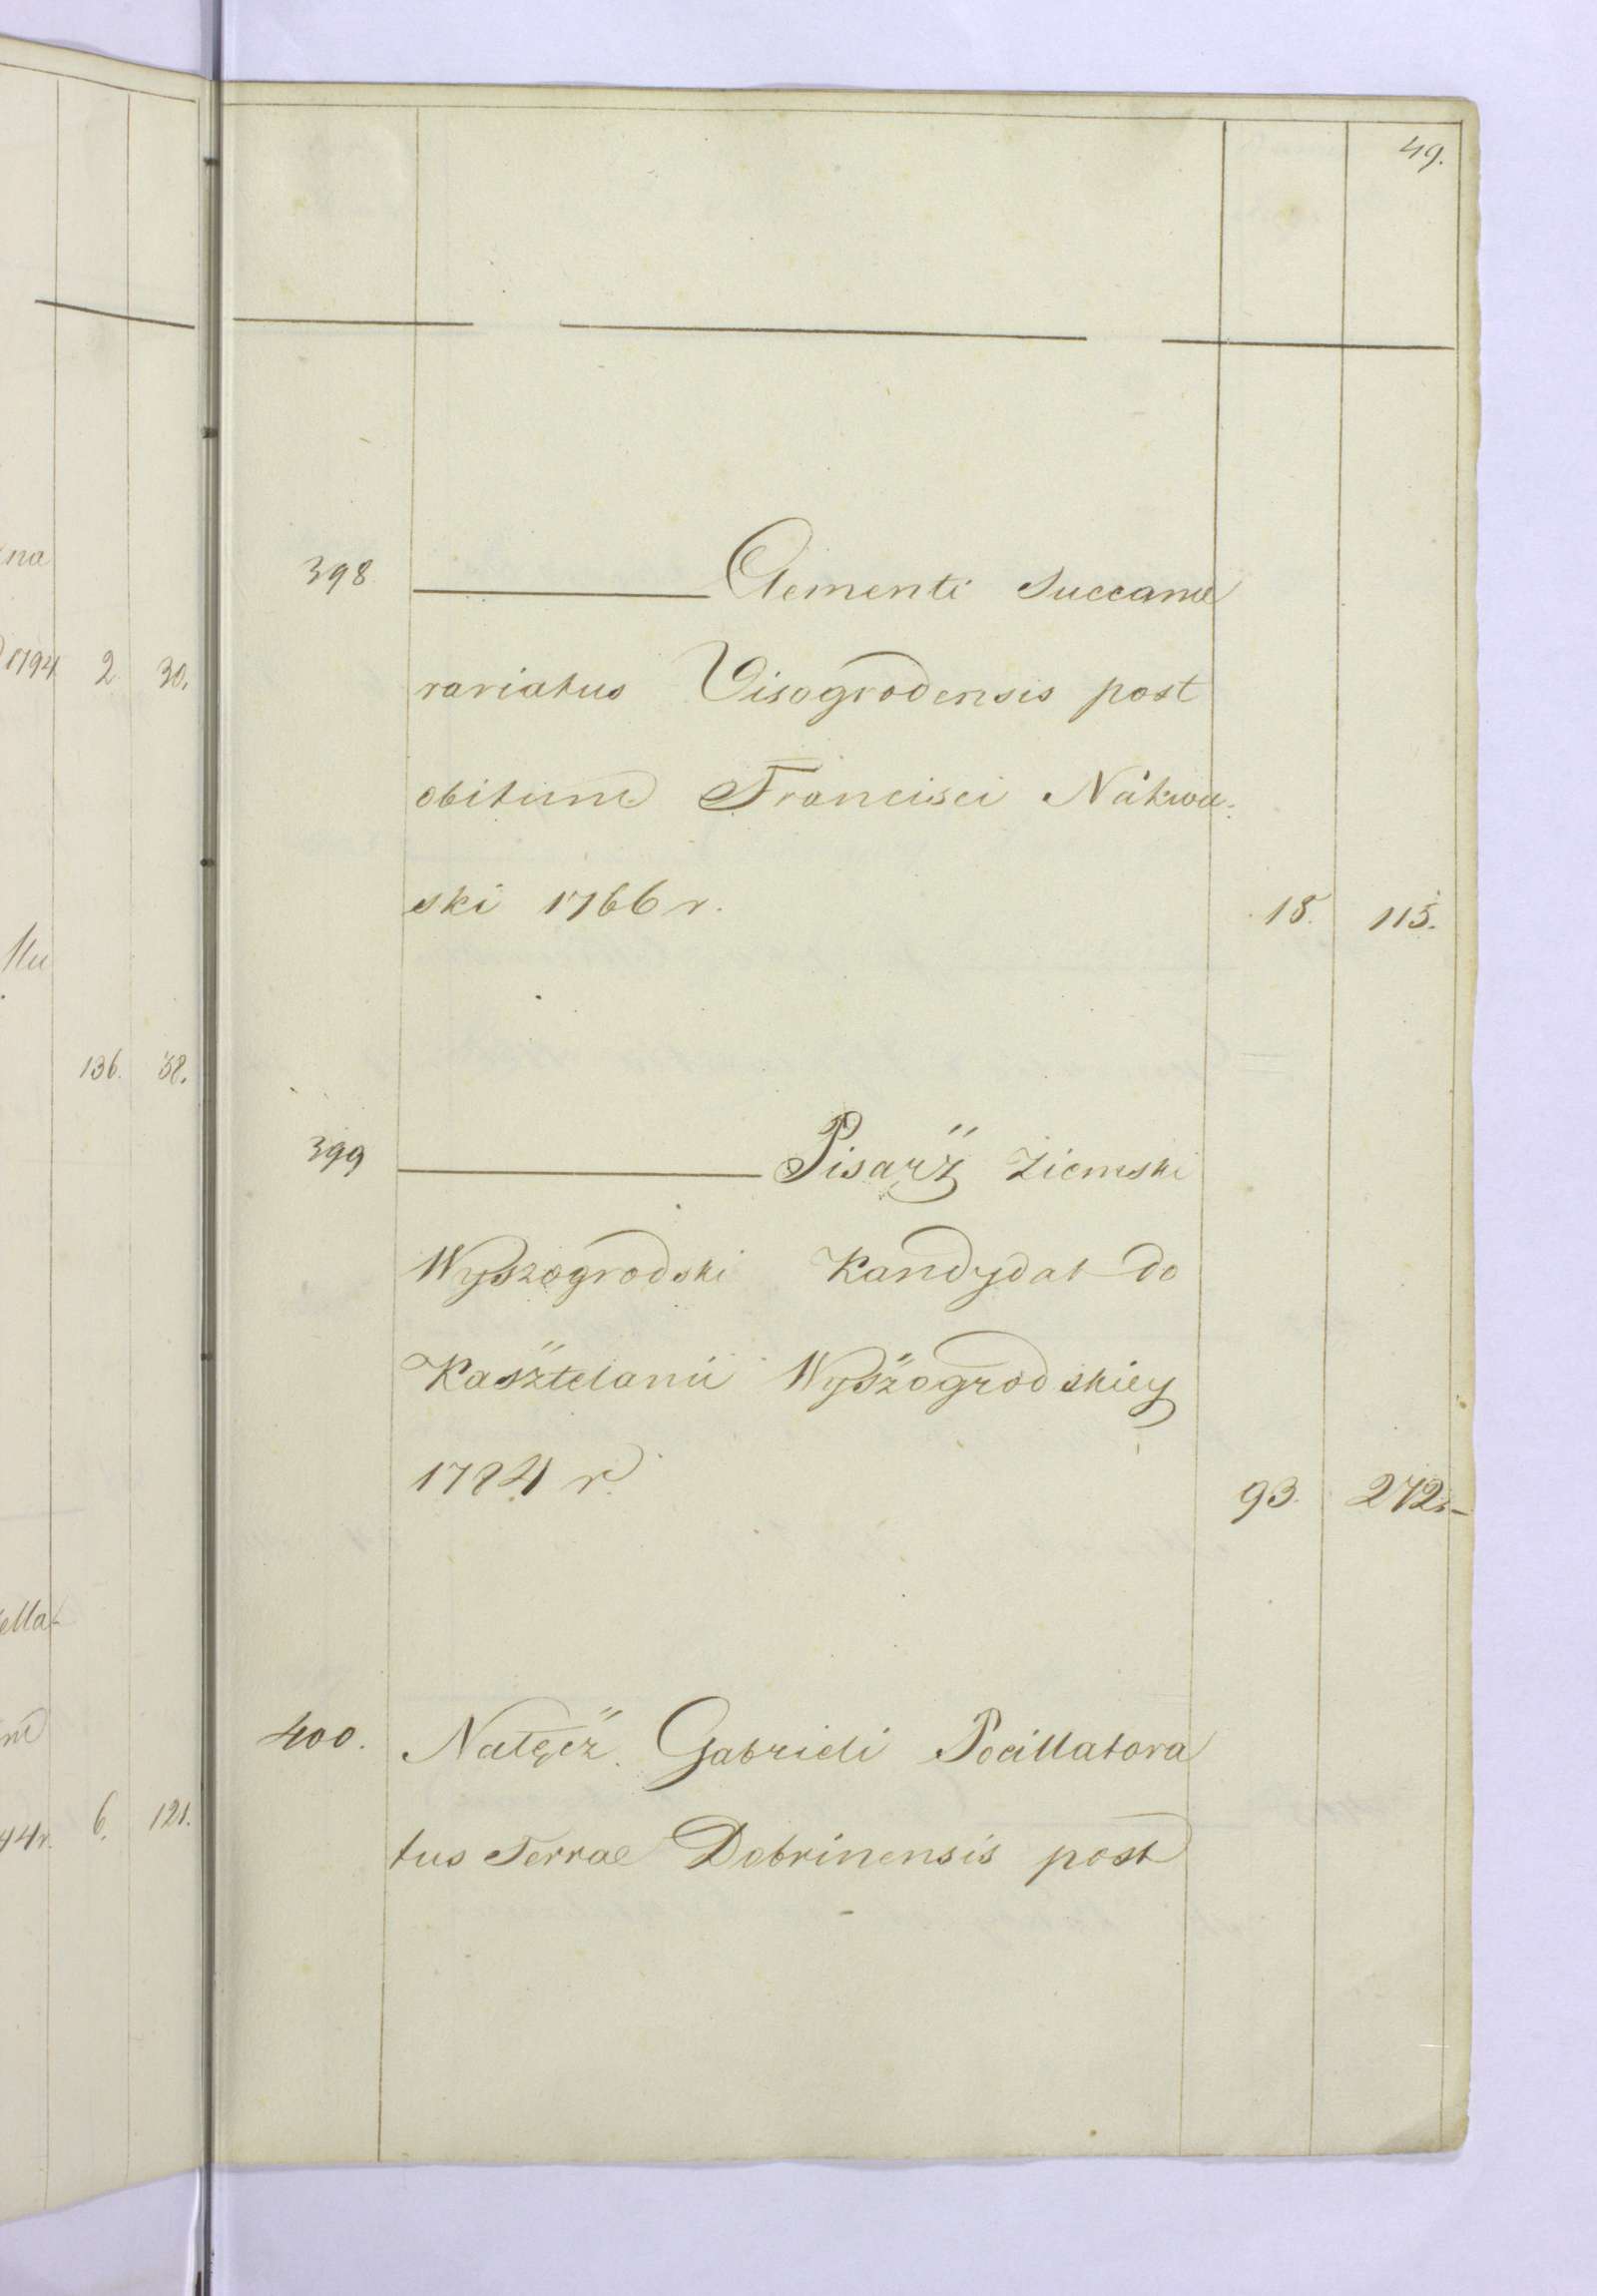 49.
na
1794 2 30.
136. 38.
6. 121.
398 Clementi Succame
rariatus Visogrodensis post
obitum Francisci Nakwa-
ski 1766 r. 18. 115.
399 Pisarz Ziemski
Wyszogrodski Kandydat do
Kasztelanii Wyszogrodskiey
1784 r. 93. 272.
400. Nałęcz. Gabrieli Pocillatora
tus Terrae Dobrinensis post